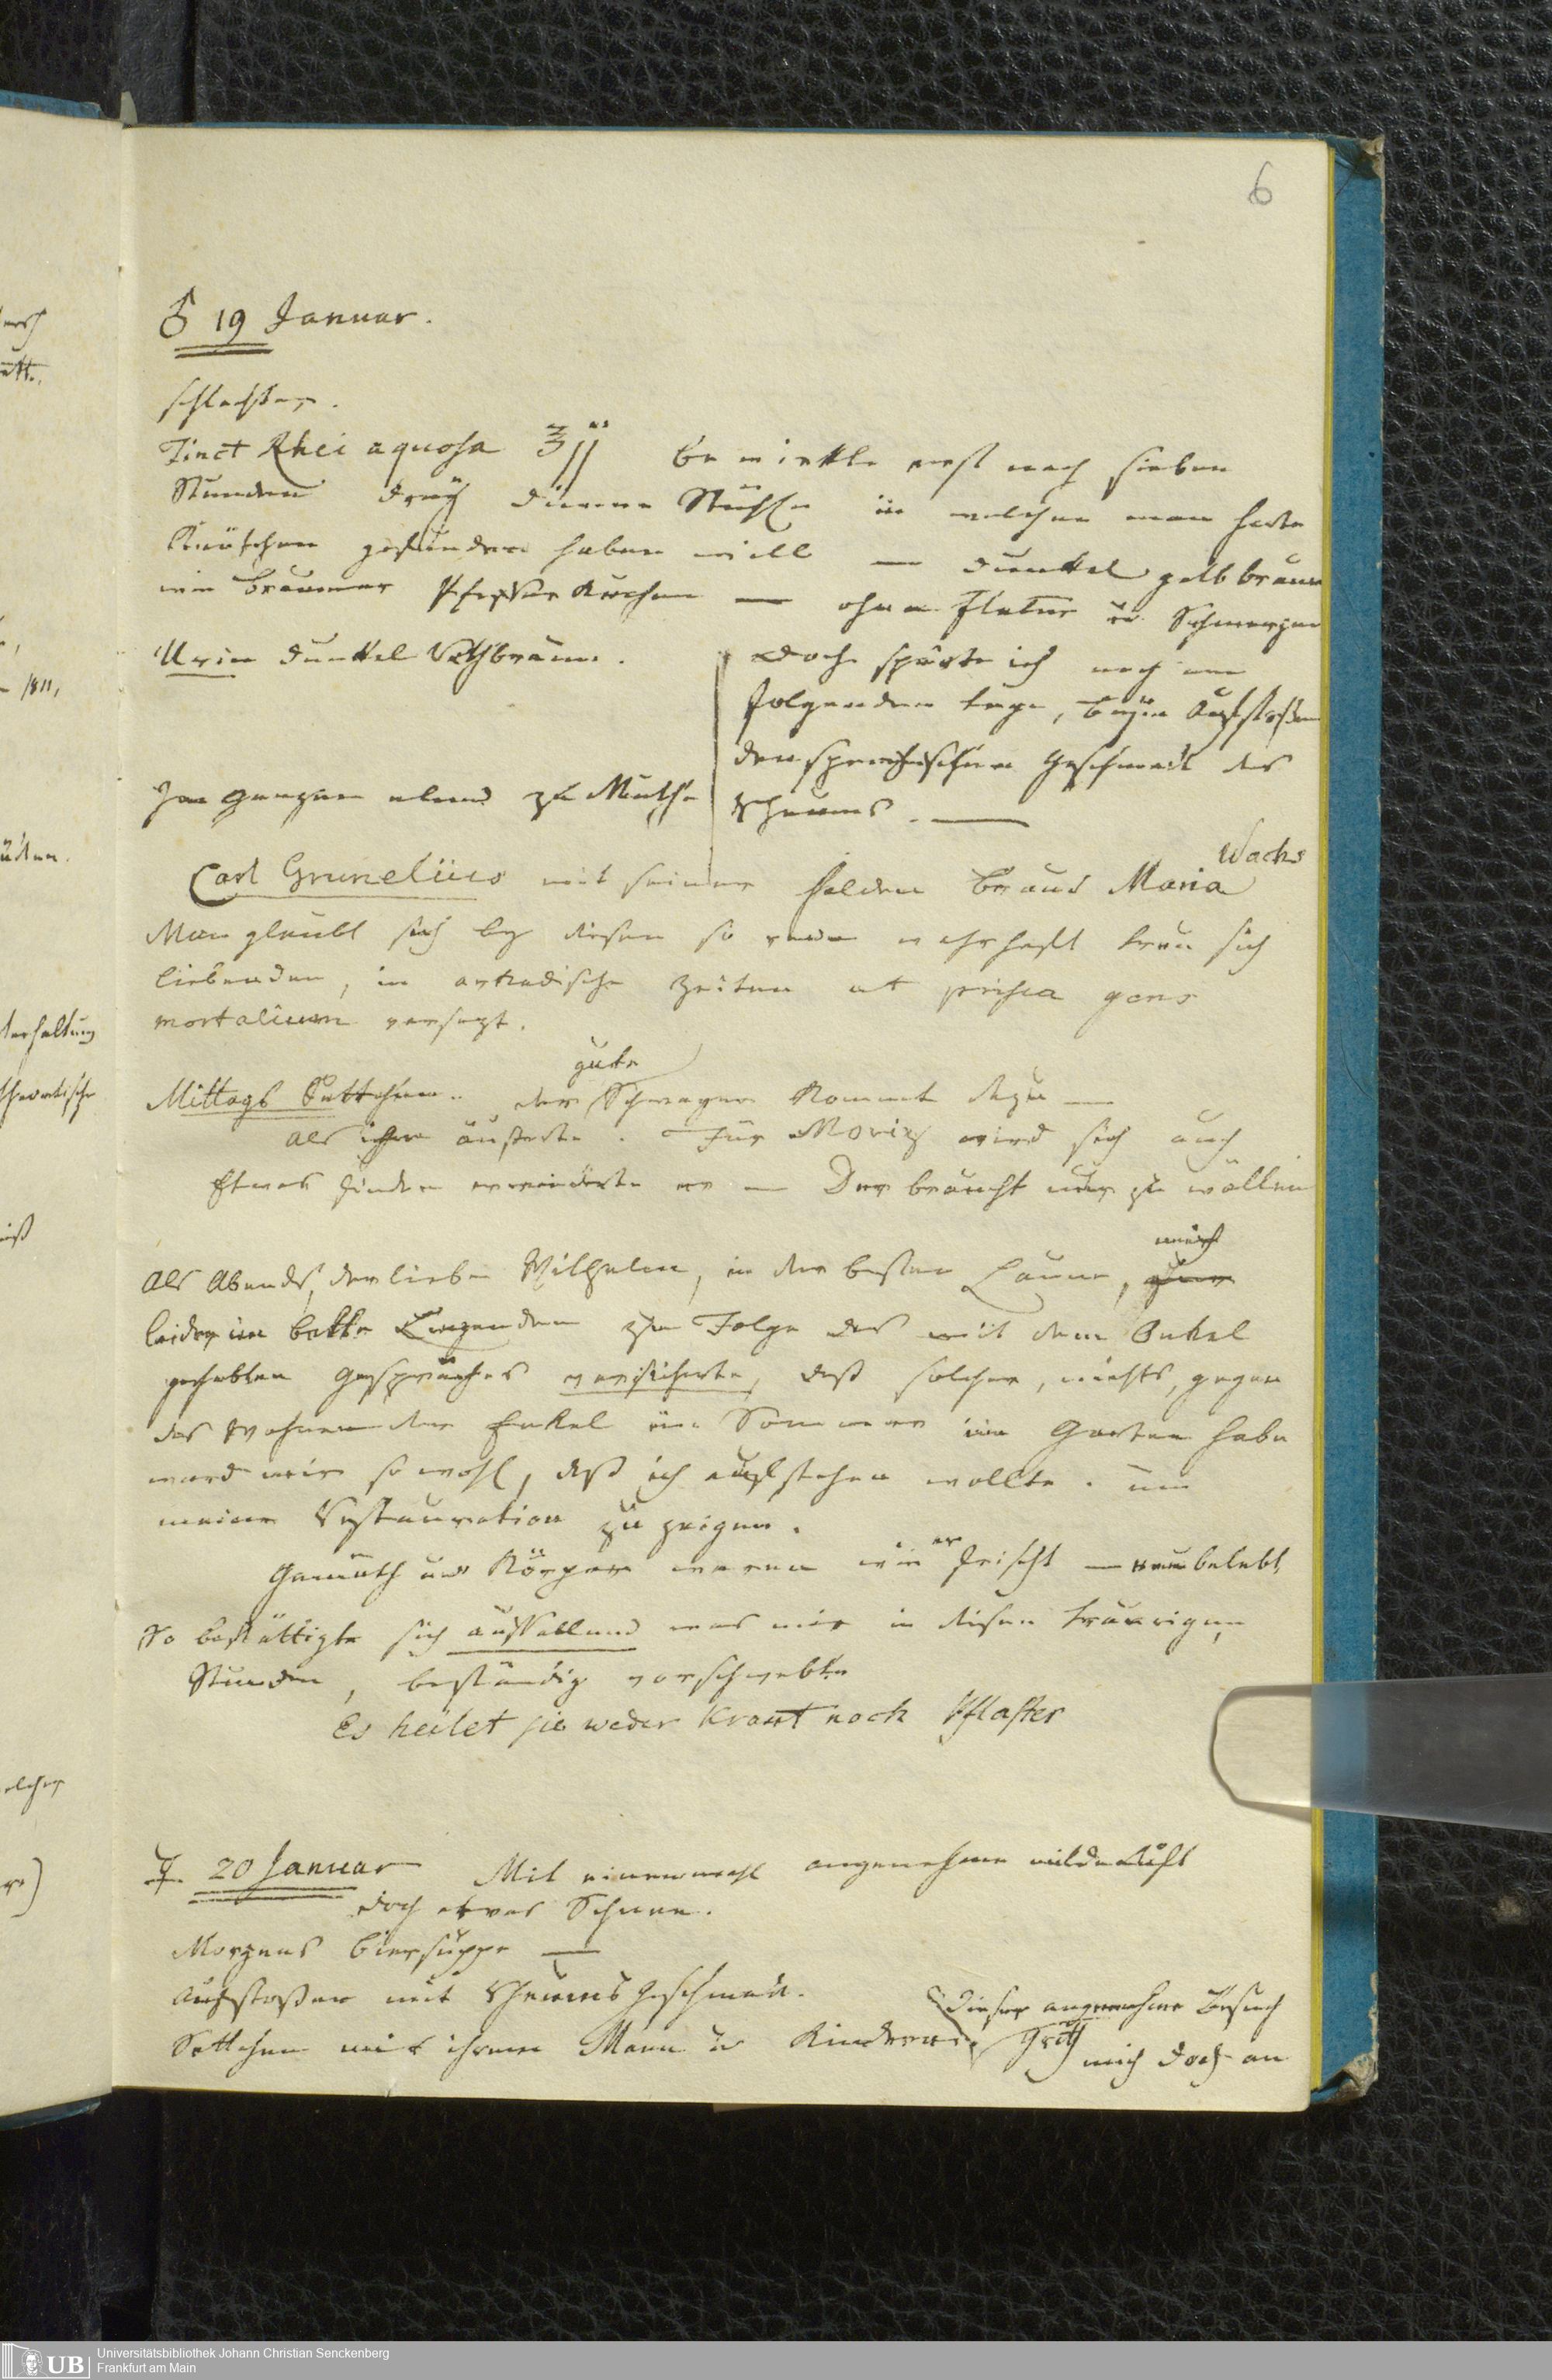 6
♂ 19 Januar.
schlechter.
Tinct Rhei aquosa ʒjj bewirkte erst nach sieben
Stunden drey dünne Stühle in welchen man harte
Knötchen gefunden haben will — dunkel gelb braun
wie brauner Pfefferkuchen — ohne Flatus u Schmerzen
Urin dunkel Rothbraun.
doch spürte ich noch am
folgenden tage, beym Aufstoßen
den specifischen Geschmack des
Rheums. —
Im ganzen elend zu Muthe
Carl Grunelius mit seiner holden Braut Maria Wachs
Man glaubt sich bey diesen so wahrhaft treu sich
liebenden, in arkadische Zeiten ut prisca gens
mortalium versezt.
Mittags Settchen.. der gute Schwager kommt dazu —
als ich äußerte. Für Moriz wird sich auch
Etwas finden erwiederte er — Der braucht nur zu wollen
Als Abends, der liebe Wilhelm, in der besten Laune, mich
leider im Bette Liegenden zu Folge des mit dem Onkel
gehabten Gespräches versicherte, daß solcher, nichts, gegen
das Wohnen der Enkel im Sommer im Garten habe
ward mir so wohl, daß ich aufstehen wollte. um
meine Restauration zu zeigen.
Gemüth und Körper waren wie erfrischt — neu belebt
So bestättigte sich auffallend was mir in diesen traurigen
Stunden, beständig vorschwebte
Es heilet sie weder Kraut noch Pflaster
☿ 20 Januar Mit einemmahl angenehme milde Luft
doch etwas Schnee.
Morgens Biersuppe —
Aufstoßen mit Rheums Geschmack.
Settchen mit ihrem Mann u Kindern.
Dieser angenehme Besuch
griff mich doch an